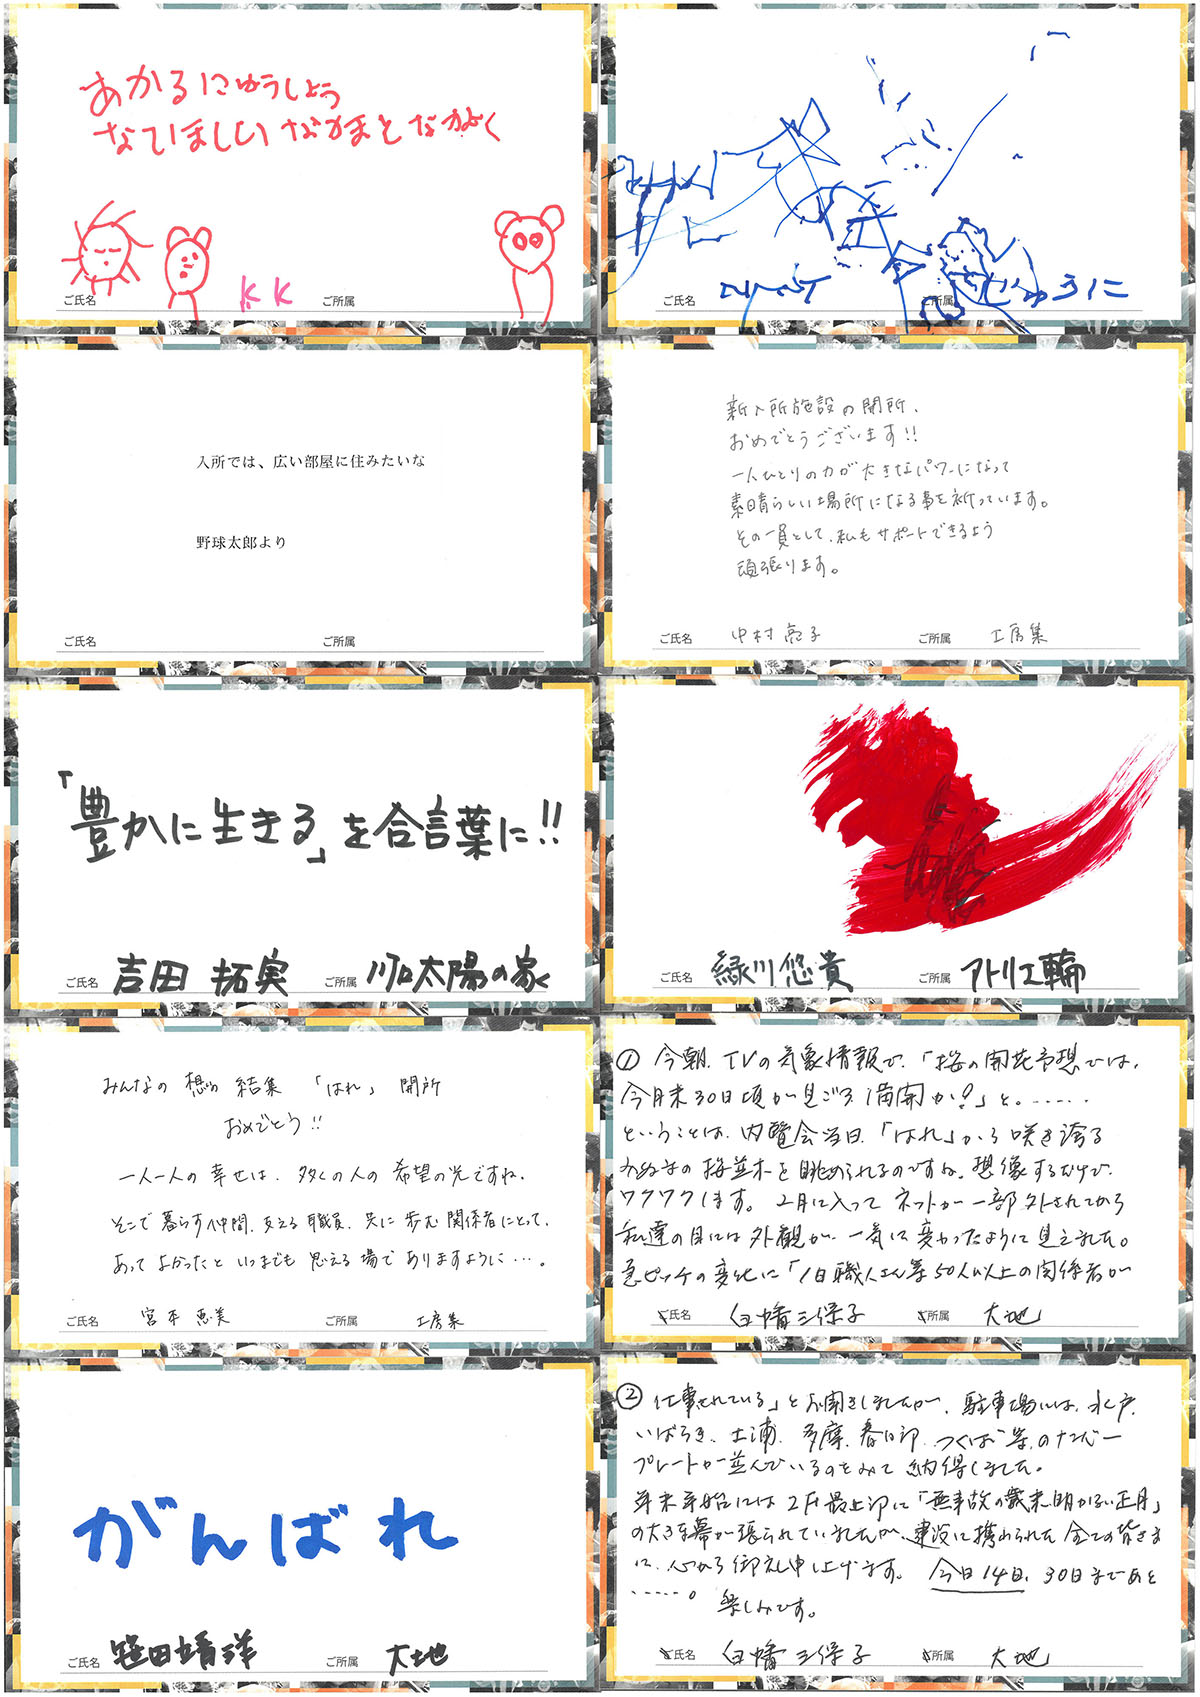 あかるにゅうしょう
なてほしい なかまとなかよく
KK
ご氏名 ご所属
ご氏名 ご所属
入所では、広い部屋に住みたいな
野球太郎より
ご氏名 ご所属
新入所施設の開所、
おめでとうございます!!
一人ひとりの力が大きなパワーになって
素晴らしい場所になる事を祈っています。
その一員として、私もサポートできるよう
頑張ります。
ご氏名 中村亮子 ご所属 工房集
「豊かに生きる」を合言葉に!!
ご氏名 吉田 拓実 ご所属 川口太陽の家
ご氏名 緑川悠貴 ご所属 アトリエ輪
みんなの想い 結集 「はれ」 開所
おめでとう!!
一人一人の幸せは、多くの人の希望の光ですね。
そこで暮らす仲間、支える職員、共に歩む関係者にとって、
あってよかったといつまでも思える場でありますように…。
ご氏名 宮本 恵美 ご所属 工房集
① 今朝、TVの気象情報で、「桜の開花予想では、
今月末30日頃が見ごろ 満開か!?」と。……
ということは、内覧会当日、「はれ」から咲き誇る
みぬまの桜並木を眺められるのですね。想像するだけで、
ワクワクします。2月に入って ネットが一部外されてから
私達の目には外観が、一気に変わったように見えました。
急ピッチの変化に「1日職人さん等50人以上の関係者が
ご氏名 白幡三保子 ご所属 大地
がんばれ
ご氏名 笹田靖洋 ご所属 大地
② 仕事されている」とお聞きしましたが、駐車場には、水戸、
いばらき、土浦、多摩、春日部、つくば等、のナンバー
プレートが並んでいるのをみて 納得しました。
年末年始には2F最上部に「無事故の歳末 明かるい正月」
の大きな幕が張られていましたが、建設に携わられた全ての皆さま
に、心から御礼申し上げます。 今日14日、30日まであと
……。 楽しみです。
ご氏名 白幡三保子 ご所属 大地